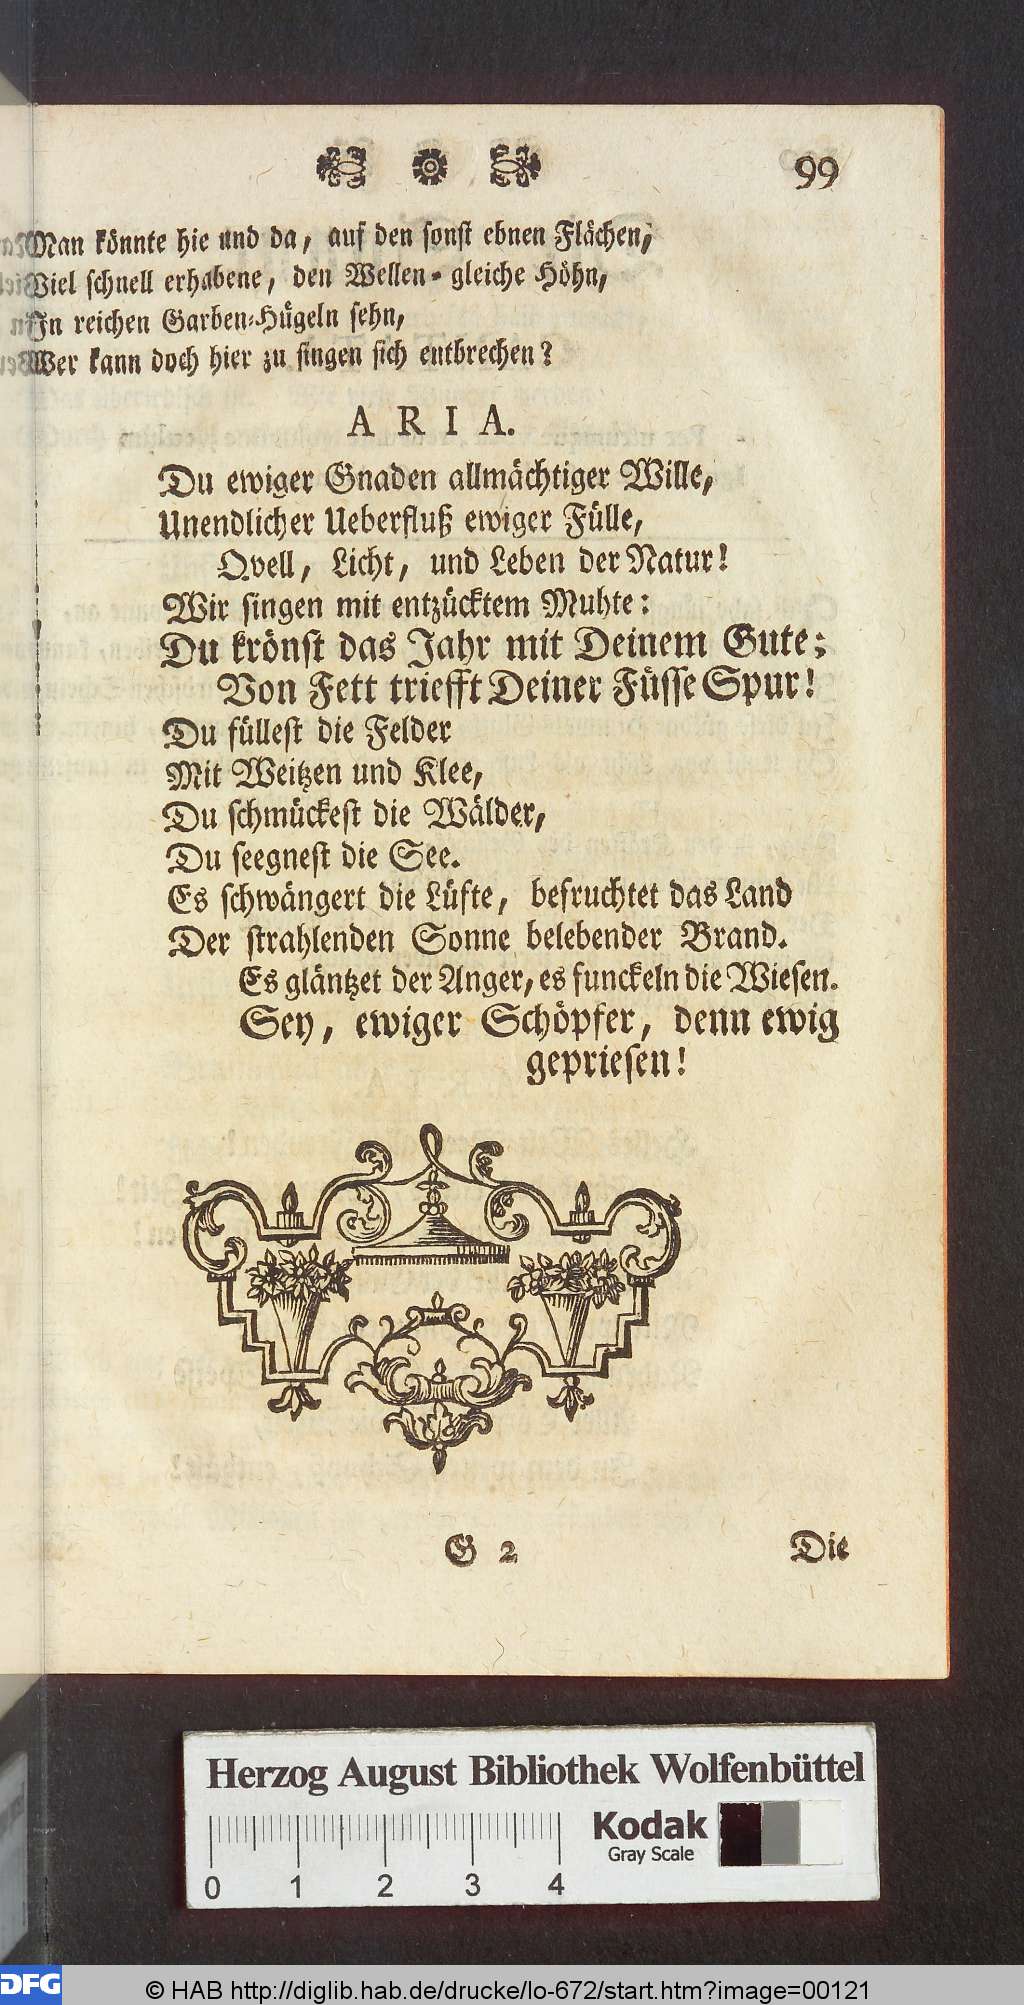 99
Man könnte hie und da, auf den sonst ebnen Flächen,
Viel schnell erhabene, den Wellen-gleiche Höhn,
In reichen Garben-Hügeln sehn,
Wer kann doch hier zu singen sich entbrechen?
ARIA.
Du ewiger Gnaden allmächtiger Wille,
Unendlicher Ueberfluß ewiger Fülle,
Qvell, Licht, und Leben der Natur!
Wir singen mit entzücktem Muhte:
Du krönst das Jahr mit Deinem Gute;
Von Fett triefft Deiner Füsse Spur!
Du füllest die Felder
Mit Weitzen und Klee,
Du schmückest die Wälder,
Du seegnest die See.
Es schwängert die Lüfte, befruchtet das Land
Der strahlenden Sonne belebender Brand.
Es gläntzet der Anger, es funckeln die Wiesen.
Sey, ewiger Schöpfer, denn ewig
gepriesen!
G 2 Die
Herzog August Bibliothek Wolfenbüttel
Kodak
Gray Scale
0 1 2 3 4
DFG © HAB http://diglib.hab.de/drucke/lo-672/start.htm?image=00121